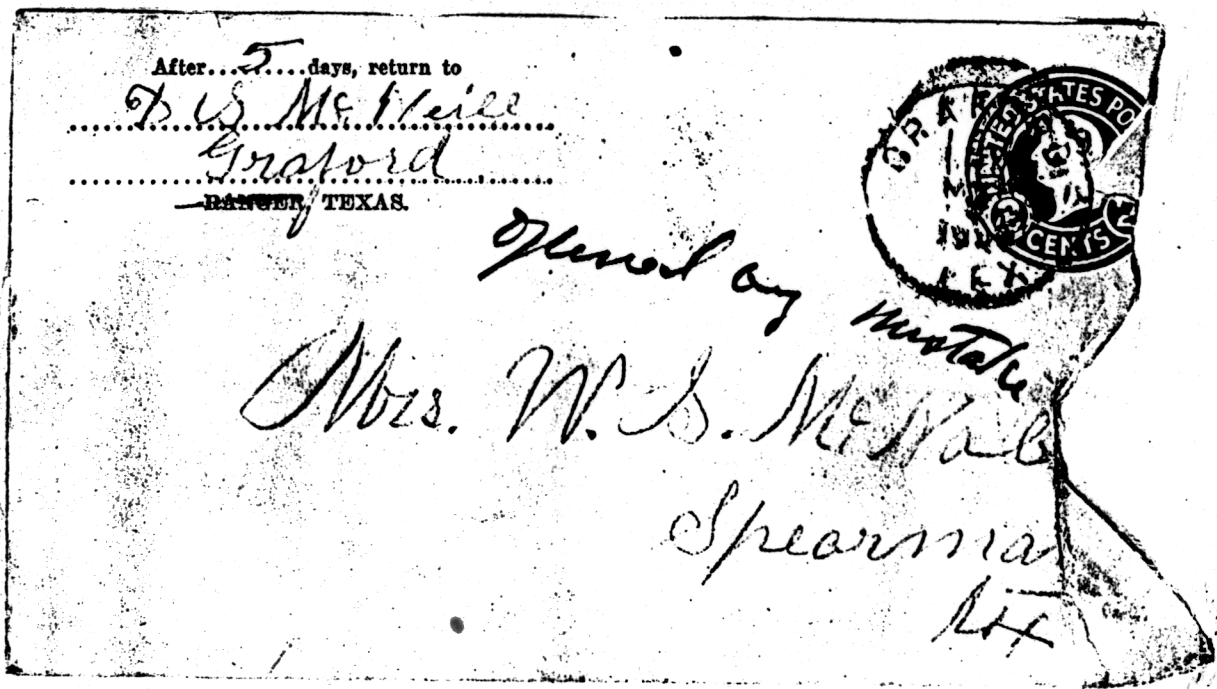 After...5....days, return to
D S McNeill
Graford
RANGER, TEXAS.
GRAF
TEX
STATES PO
2 CENTS 2
opened by mistake
Mrs. W. S. McNab
Spearma